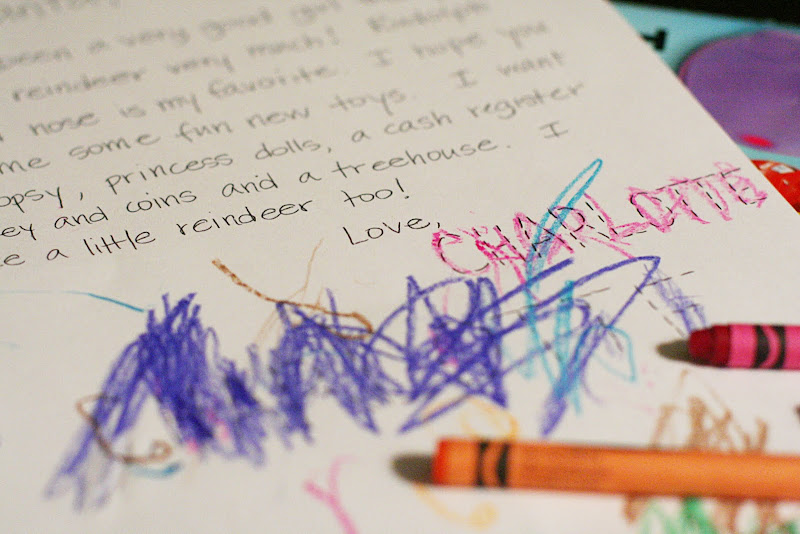 been a very good girl
reindeer very much! Rudolph
nose is my favorite. I hope you
me some fun new toys. I want
opsy, princess dolls, a cash register
ey and coins and a treehouse. I
e a little reindeer too!
Love, CHARLOTTE